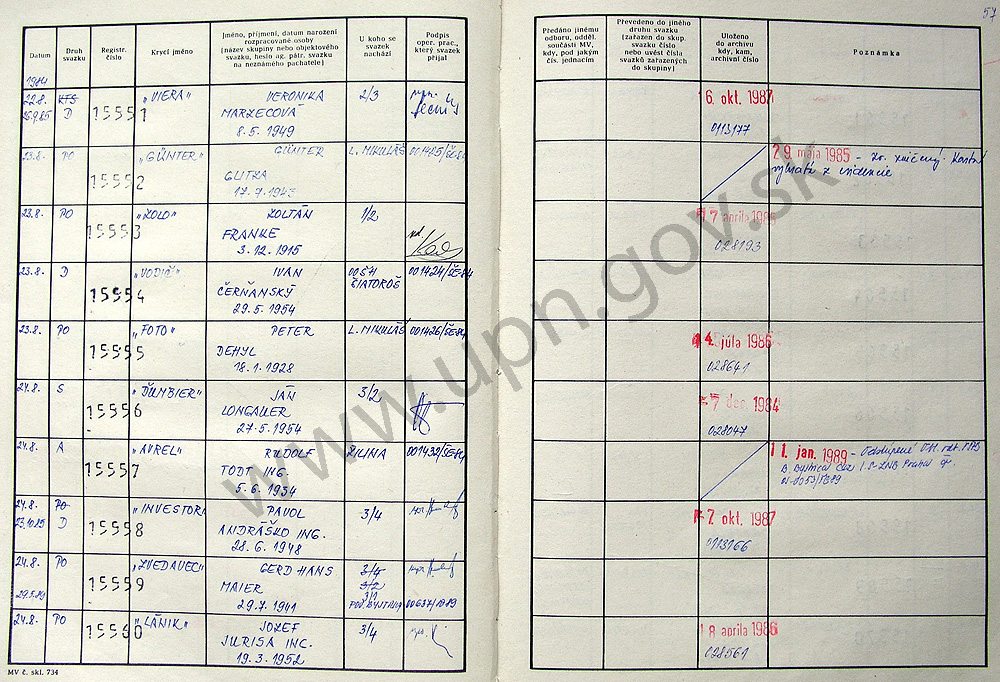 57
Datum
Druh svazku
Registr. číslo
Krycí jméno
Jméno, příjmení, datum narození
rozpracované osoby
(název skupiny nebo objektového
svazku, heslo ag. pátr. svazku
na neznámého pachatele)
U koho se
svazek
nachází
Podpis
oper. prac.,
který svazek
přijal
Předáno jinému
odboru, odděl.
součásti MV,
kdy, pod jakým
čís. jednacím
Převedeno do jiného
druhu svazku
(zařazen do skup.
svazku číslo
nebo uvést čísla
svazků zařazených
do skupiny)
Uloženo
do archivu
kdy, kam,
archivní číslo
Poznámka
1984
22.8. KTS 15551 „VIERA" VERONIKA 2/3 6. okt. 1987
25.9.85 D MARZECOVÁ
8.5.1949 0113177
23.8. PO 15552 „GÜNTER" GÜNTER L. MIKULÁŠ 001425/ŠE-84 29 mája 1985
GLITKA z evidencie
23.8. PO 15553 „ZOLO" ZOLTÁN 1/2 17 apríla
FRANKE
3.12.1915 028193
23.8. D 15554 „VODIČ" IVAN 001424/ŠE-84
ČERŇANSKÝ ČIATOROŠ
29.5.1954
23.8. PO 15555 „FOTO" PETER L. MIKULÁŠ 001426/ŠE-84 4. júla 1986
DEHYL
18.1.1928 028641
24.8. S 15556 „ĎUMBIER" JÁN 3/2 7 dec. 1984
LONGAUER
27.5.1954 028047
24.8. A 15557 „AVREL" RUDOLF ŽILINA 001432/ŠE-84 11. jan. 1989
TODT ING. Praha
5.6.1934
24.8. PO 15558 „INVESTOR" PAVOL 3/4 7. okt. 1987
23.10.85 D ANDRÁŠKO ING.
28.6.1948 0113166
24.8. PO 15559 „ZVEDAVEC" GERD HANS 3/4
MAIER 3/2
29.7.1941 POV. BYSTRICA 00637/1989
24.8. PO 15560 „LÁNIK" JOZEF 3/4 18 apríla 1986
JURISA ING.
19.3.1952 028561
MV č. skl. 734
www.upn.gov.sk